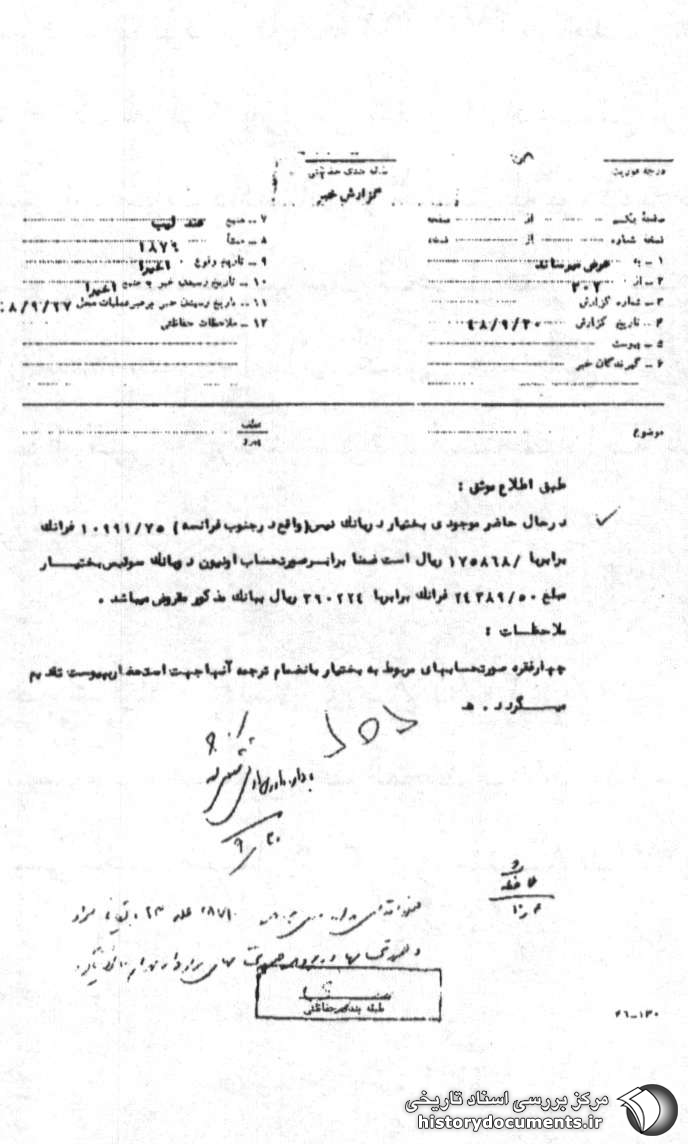 درجه فوریت
طبقه بندی حفاظتی
گزارش خبر
صفحه یک از صفحه
نسخه شماره از نسخه
۱ ـ به عرض میرساند
۲ ـ از ۲۰۲
۳ ـ شماره گزارش
۴ ـ تاریخ گزارش ۴۸/۹/۲۰
۵ ـ پیوست
۶ ـ گیرندگان خبر
۷ ـ منبع عندلیب
۸ ـ منشأ ۱۸۷۶
۹ ـ تاریخ وقوع اخیرا
۱۰ ـ تاریخ رسیدن خبر به منبع اخیرا
۱۱ ـ تاریخ رسیدن خبر برهبر عملیات محل ۸/۹/۱۷
۱۲ ـ ملاحظات حفاظتی
موضوع
عطف
پیرو
طبق اطلاع موثق :
درحال حاضر موجودی بختیار دربانک نیس (واقع درجنوب فرانسه) ۱۰۹۹۱/۷۵ فرانک
برابربا /۱۷۵۸۶۸ ریال است ضمنا برابرصورتحساب اونیون دوبانک سوئیس بختیار
مبلغ ۲۴۳۸۹/۵۰ فرانک برابربا ۳۹۰۲۲۴ ریال ببانک مذکور مقروض میباشد .
ملاحظات :
چهارفقره صورتحسابهای مربوط به بختیار بانضمام ترجمه آنها جهت استحضار بپیوست تقدیم
میگردد . ه
۲۰
۹
طبقه بندی حفاظتی
۲۱-۱۳۰
مرکز بررسی اسناد تاریخی
historydocuments.ir